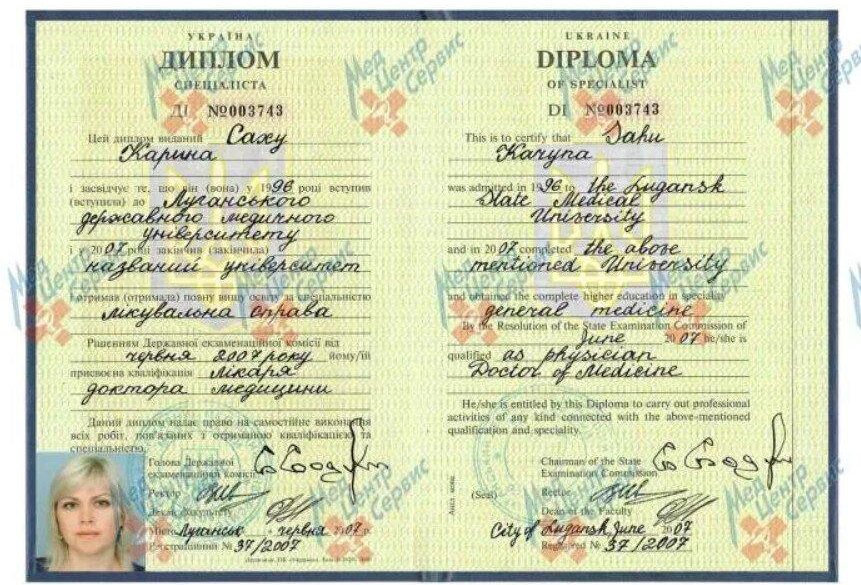 УКРАЇНА
ДИПЛОМ
СПЕЦІАЛІСТА
ДІ №003743
Цей диплом виданий Саху
Карина
і засвідчує те, що він (вона) у 1996 році вступив
(вступила) до Луганського
державного медичного
університету
і у 2007 році закінчив (закінчила)
названий університет
і отримав (отримала) повну вищу освіту за спеціальністю
лікувальна справа
Рішенням Державної екзаменаційної комісії від
червня 2007 року йому/їй
присвоєна кваліфікація лікаря
доктора медицини
Даний диплом надає право на самостійне виконання
всіх робіт, пов'язаних з отриманою кваліфікацією та
спеціальністю.
Голова Державної
екзаменаційної комісії
Ректор
Декан факультету
Місто Луганськ червня 2007 р.
Реєстраційний № 37/2007
UKRAINE
DIPLOMA
OF SPECIALIST
DI №003743
This is to certify that Sahu
Karyna
was admitted in 1996 to the Lugansk
State Medical
University
and in 2007 completed the above
mentioned University
and obtained the complete higher education in speciality
general medicine
By the Resolution of the State Examination Commission of
June 2007 he/she is
qualified as physician
Doctor of Medicine
He/she is entitled by this Diploma to carry out professional
activities of any kind connected with the above-mentioned
qualification and speciality.
Chairman of the State
Examination Commission
(Seal) Rector
Dean of the Faculty
City of Lugansk June 2007
Registered № 37/2007
Мед Центр Сервис